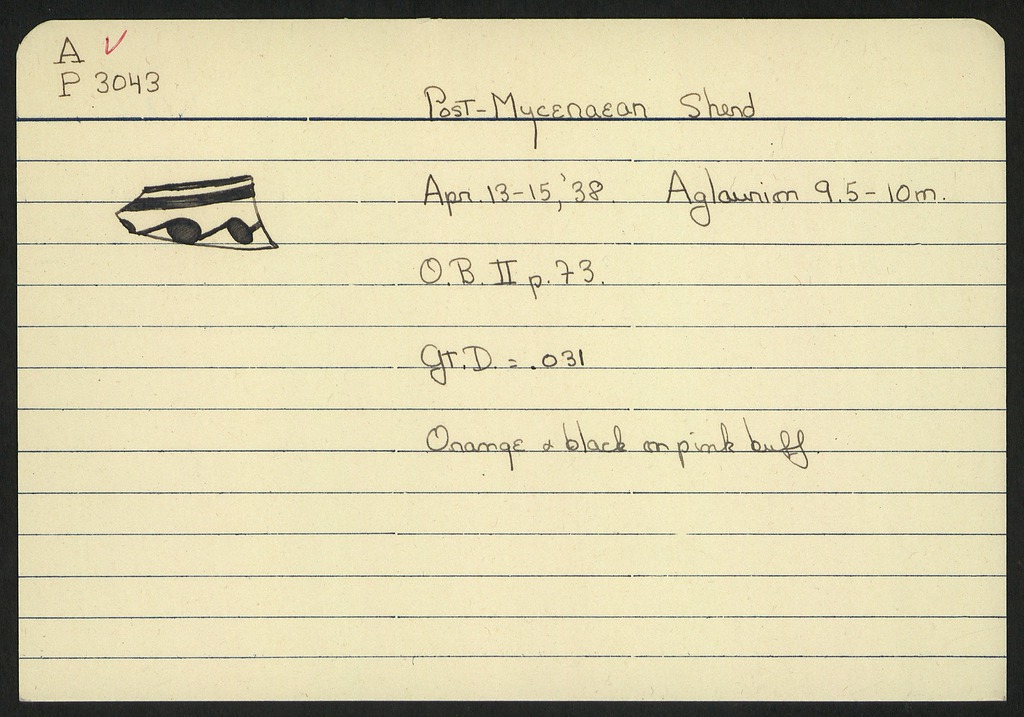 A ✓
P 3043
Post-Mycenaean Sherd
Apr. 13-15, '38. Aglaurion 9.5-10m.
O.B. II p.73.
Gt.D. = .031
Orange & black on pink buff.